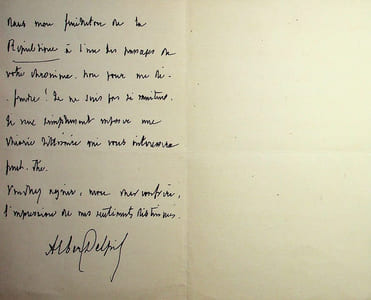 dans mon feuilleton de la
République à l'un des passages de
votre chronique. non pour me dé-
fendre! Je ne suis pas si
Je veux simplement exposer une
théorie littéraire qui vous intéressera
peut-être.
Veuillez agréer, mon cher confrère,
l'impression de mes sentiments distingués.
Albert Delpit